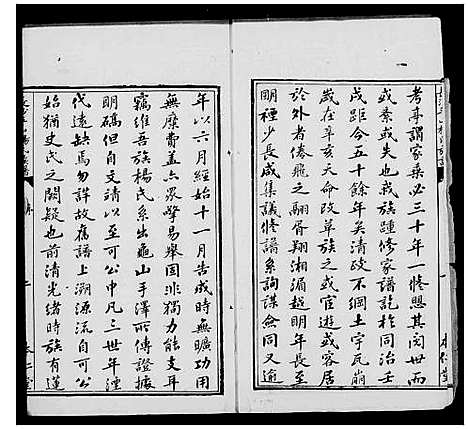 考亭謂家乘必三十年一修懼其閱世而
或紊或失也我族踵修家譜訖於同治壬
戌距今五十餘年矣清政不綱土宇瓦崩
歲在辛亥天命改草族之或宦遊或客居
於外者倦飛之翮胥翔湘湄越明年長至
明禋少長咸集議修譜系詢謀僉同又逾
年以六月經始十一月告成時無曠功用
無糜費蓋亦眾擎易舉固非獨力能支耳
竊維吾族楊氏系出龜山手澤所傳證據
明碻但自文靖以至可公中凡三世年湮
代遠缺焉勿詳故舊譜上溯源流自可公
始猶史氏之闕疑也前清光緒時族有蓮